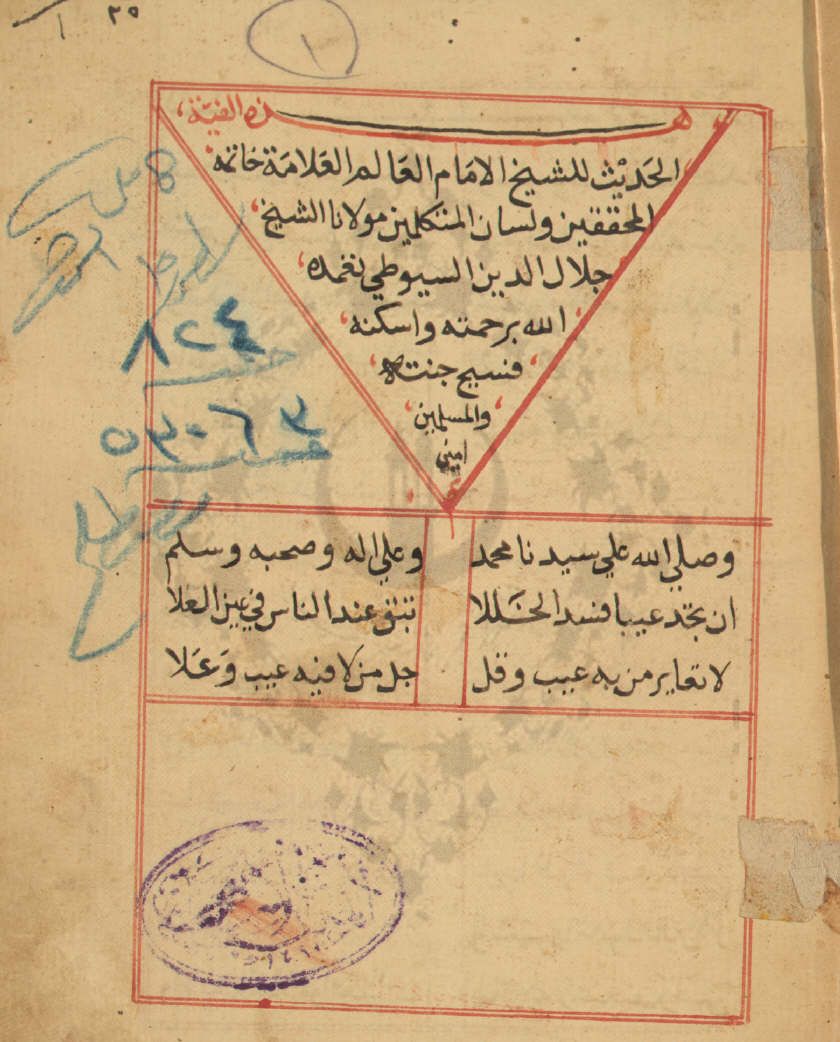 ٢٥
١
١
هذه الفية
الحديث للشيخ الامام العالم العلامة خاتمة
المحققين ولسان المتكلمين مولانا الشيخ
جلال الدين السيوطي تغمده
الله برحمته واسكنه
فسيح جنته
والمسلمين
امين
وصلي الله علي سيدنا محمد وعلي اله وصحبه وسلم
ان تجد عيبا فسد الخللا تبق عند الناس في عين العلا
لا تعاير من به عيب وقل جل من لا فيه عيب وعلا
٨٢٤
٥٣٠٦٣